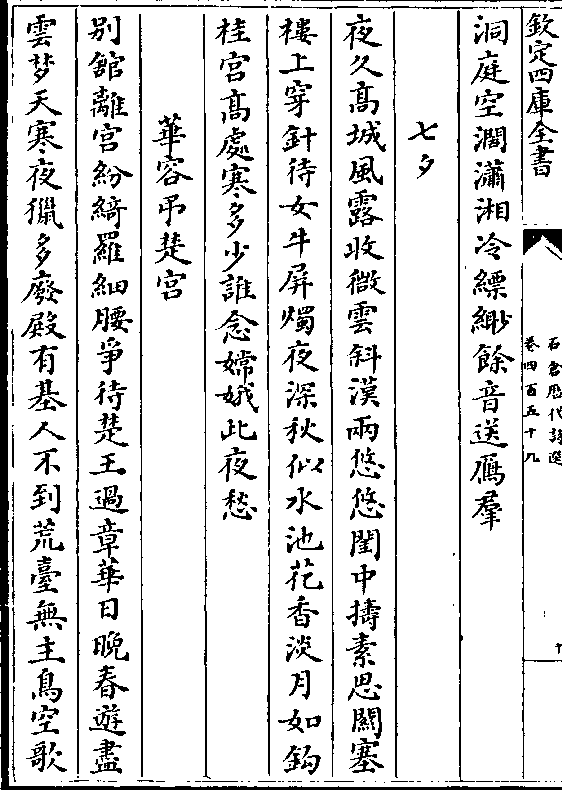 欽定四庫全書
石倉歷代詩選
卷四百五十九
十
洞庭空濶瀟湘冷縹緲餘音送鴈羣
七夕
夜久髙城風露收微雲斜漢兩悠悠閨中擣素思闗塞
樓上穿針待女牛屏燭夜深秋似水池花香淡月如鈎
桂宮髙處寒多少誰念嫦娥此夜愁
華容弔楚宮
别舘離宮紛綺羅細腰爭待楚王過章華日晚春遊盡
雲梦天寒夜獵多廢殿有基人不到荒臺無主鳥空歌